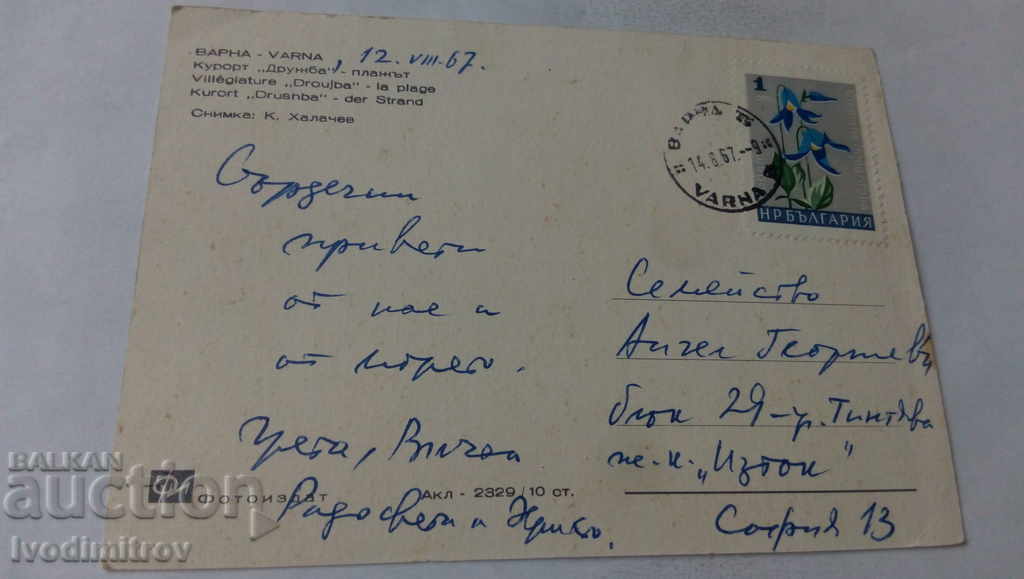 ВАРНА - VARNA, 12. VIII. 67.
Курорт „Дружба" - плажът
Villégiature „Droujba" - la plage
Kurort „Drushba" - der Strand
Снимка: К. Халачев
1
ВАРНА
14.8.67.--9
VARNA
НРБЪЛГАРИЯ
Сърдечни
привети
от нас и
от морето.
Семейство
Ангел Георгиеви
блок 29-ур. Тинтява
ж.к. „Изток"
София 13
Фотоиздат
Акл - 2329/10 ст.
BALKAN
auction
Ivodimitrov